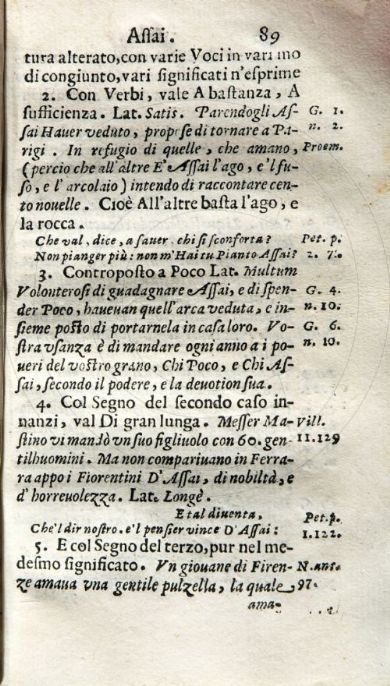 Assai. 89
tura alterato, con varie Voci in vari mo
di congiunto, vari significati n'esprime
2. Con Verbi, vale A bastanza, A
sufficienza. Lat. Satis. Parendogli As- G. 1.
sai Hauer veduto, propose di tornare a Pa- n. 2.
rigi. In refugio di quelle, che amano, Proem.
(percio che all'altre E' Assai l'ago, e'l fu-
so, e l'arcolaio) intendo di raccontare cen-
to nouelle. Cioè All'altre basta l'ago, e
la rocca.
Che val, dice, a sauer, chi si sconforta? Pet. p.
Non pianger più: non m'Hai tu Pianto Assai? 2. 7.
3. Contraposto a Poco Lat. Multum
Volonterosi di guadagnare Assai, e di spen- G. 4.
der Poco, haueuan quell'arca veduta, e in- n. 10.
sieme posto di portarnela in casa loro. Vo- G. 6.
stra vsanza è di mandare ogni anno a i po- n. 10.
ueri del vostro grano, Chi Poco, e Chi As-
sai, secondo il podere, e la deuotion sua.
4. Col Segno del secondo caso in-
nanzi, val Di gran lunga. Messer Ma- Vill.
stino vi mandò vn suo figliuolo con 60. gen- 11.129
tilhuomini. Ma non compariuano in Ferra-
ra appo i Fiorentini D'Assai, di nobiltà, e
d'horreuolezza. Lat. Longè.
E tal diuenta, Pet. p.
Che'l dir nostro, e'l pensier vince D'Assai: 1.122.
5. E col Segno del terzo, pur nel me-
desmo significato. Vn giouane di Firen- N. ant.
ze amaua vna gentile pulzella, la quale 97.
ama-